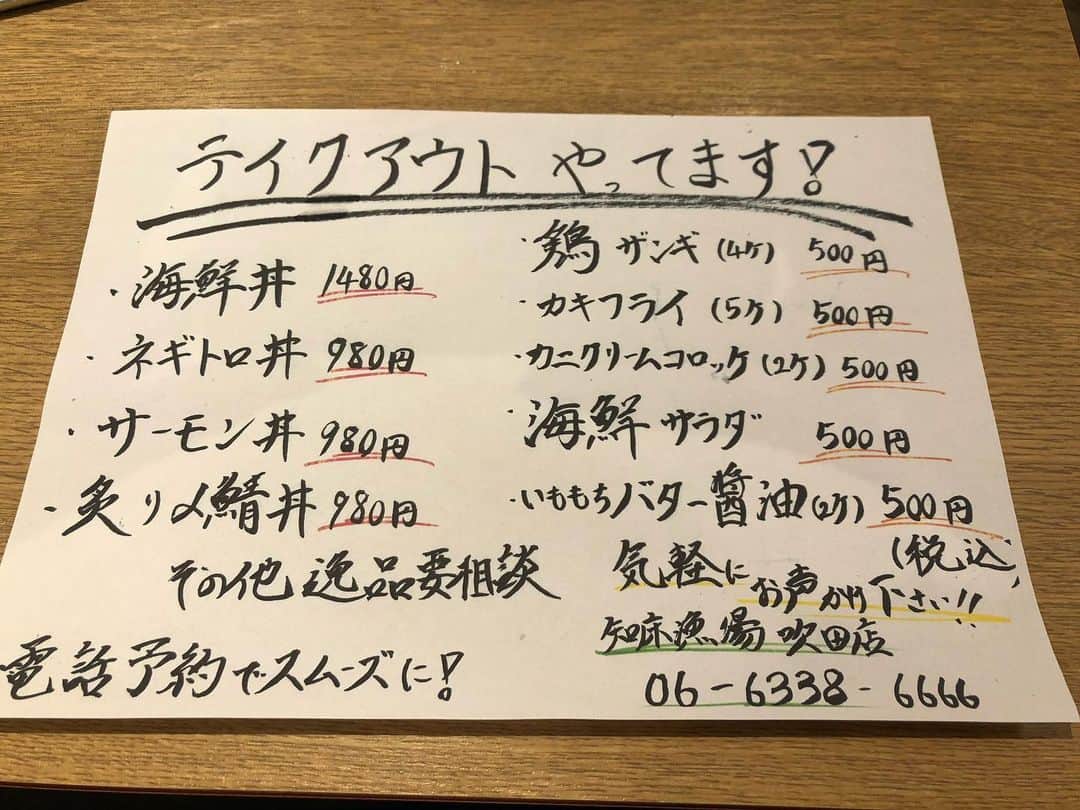 テイクアウトやってます!
・海鮮丼 1480円
・ネギトロ丼 980円
・サーモン丼 980円
・炙り〆鯖丼 980円
その他逸品要相談
電話予約でスムーズに!
・鶏ザンギ(4ケ) 500円
・カキフライ(5ケ) 500円
・カニクリームコロッケ(2ケ) 500円
・海鮮サラダ 500円
・いももちバター醤油(2ケ) 500円
(税込)
気軽にお声かけ下さい!!
知床漁場 吹田店
06-6338-6666